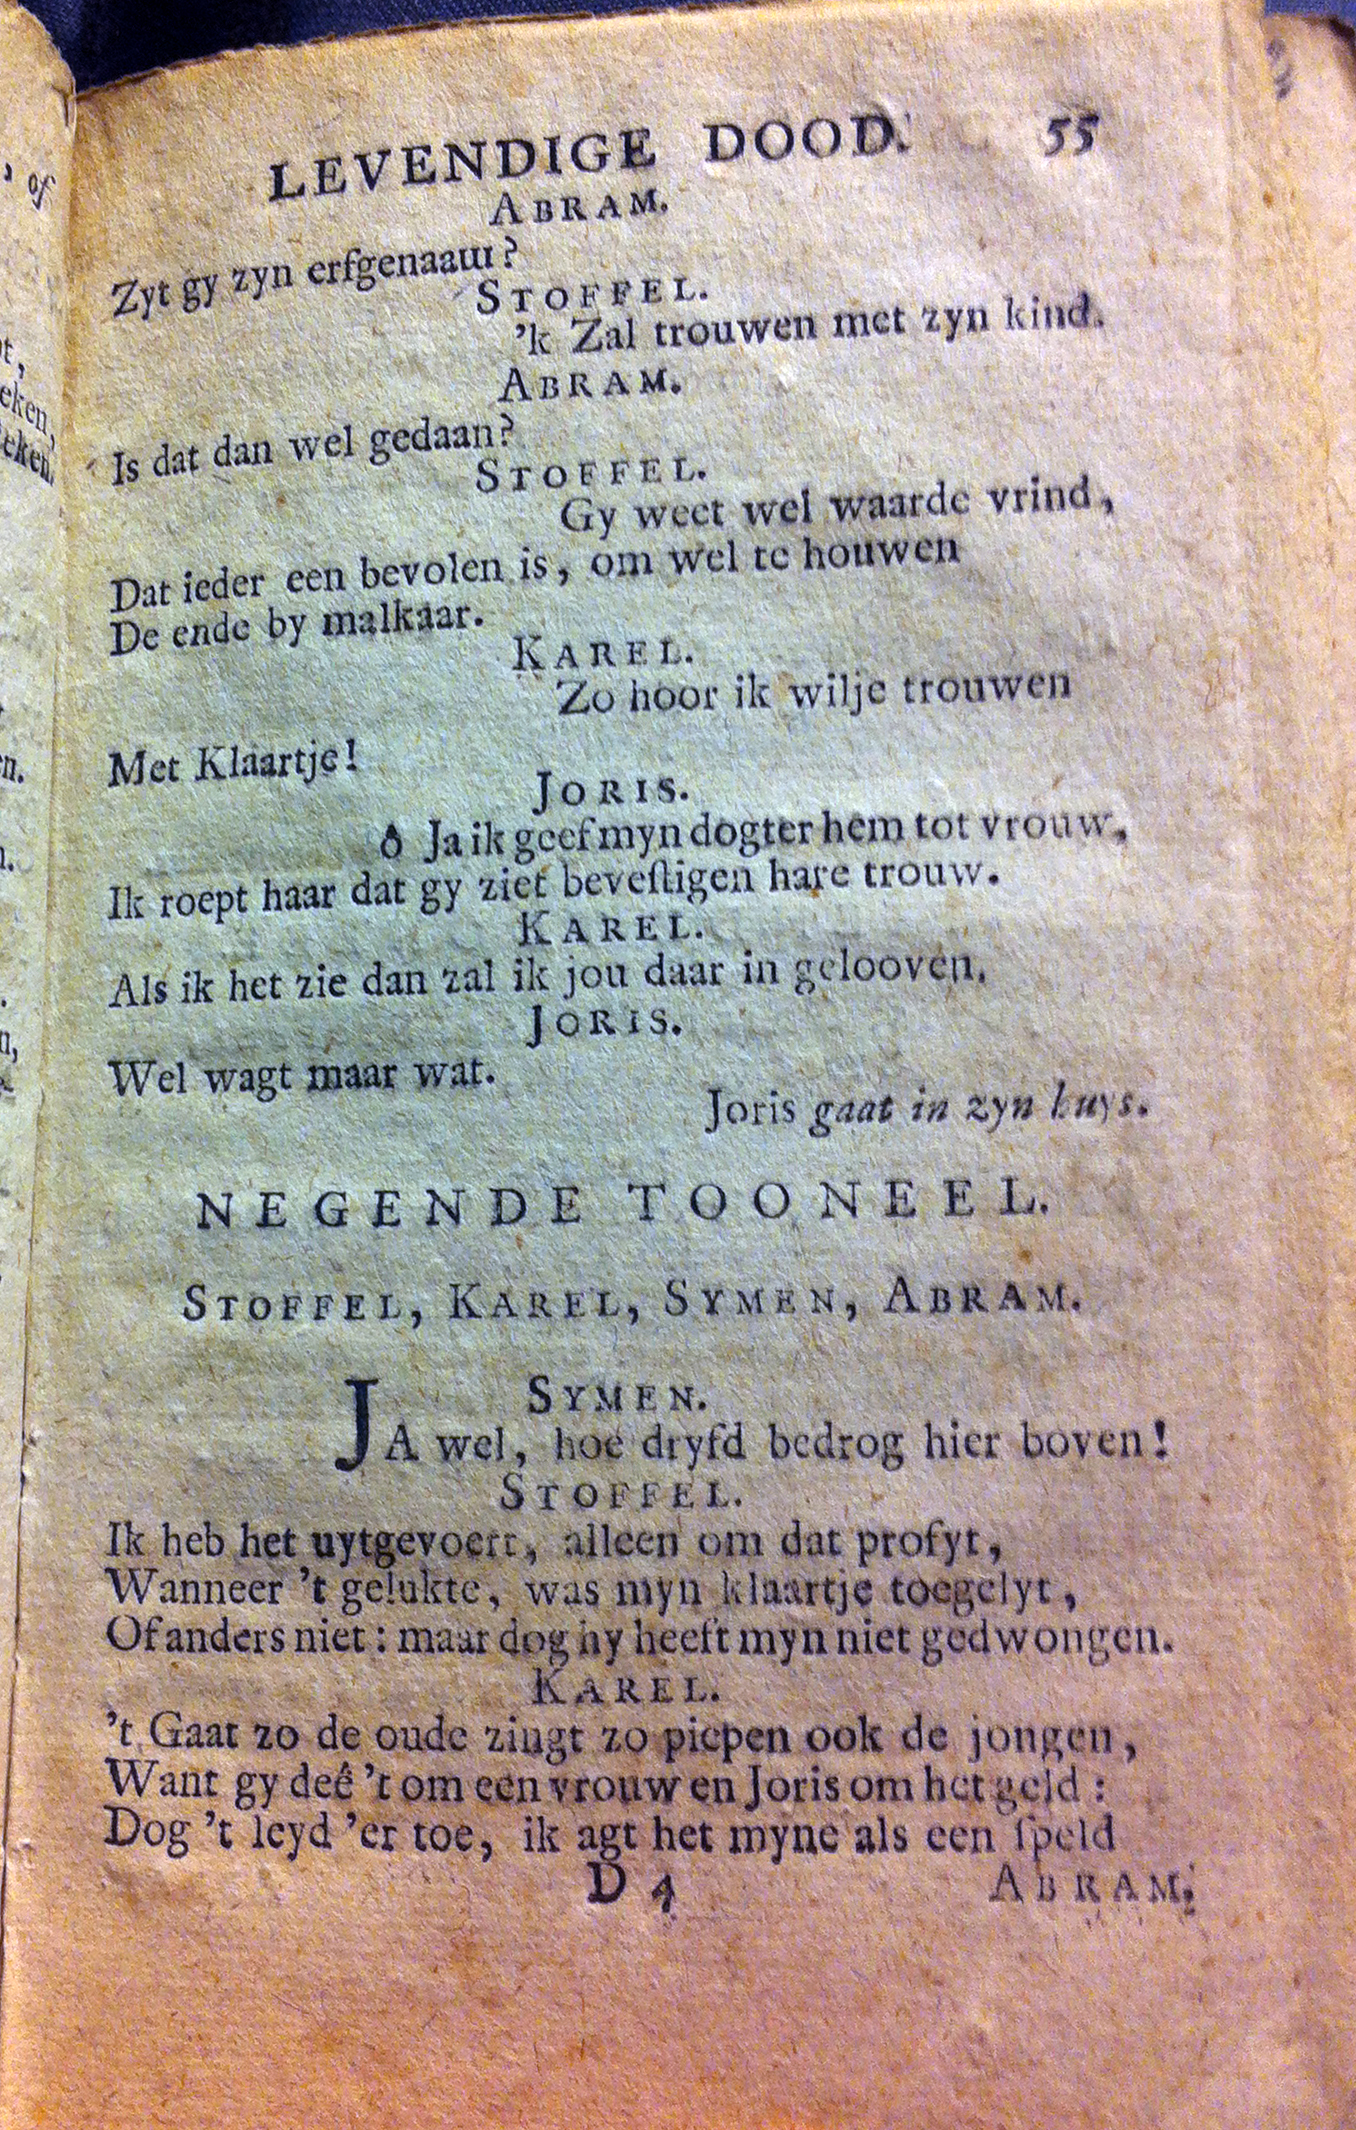 LEVENDIGE DOOD. 55
ABRAM.
Zyt gy zyn erfgenaam?
STOFFEL.
'k Zal trouwen met zyn kind.
ABRAM.
Is dat dan wel gedaan?
STOFFEL.
Gy weet wel waarde vrind,
Dat ieder een bevolen is, om wel te houwen
De ende by malkaar.
KAREL.
Zo hoor ik wilje trouwen
Met Klaartje!
JORIS.
ô Ja ik geef myn dogter hem tot vrouw,
Ik roept haar dat gy ziet beveſtigen hare trouw.
KAREL.
Als ik het zie dan zal ik jou daar in gelooven.
JORIS.
Wel wagt maar wat.
Joris gaat in zyn huys.
NEGENDE TOONEEL.
STOFFEL, KAREL, SYMEN, ABRAM.
SYMEN.
JA wel, hoe dryfd bedrog hier boven!
STOFFEL.
Ik heb het uytgevoert, alleen om dat profyt,
Wanneer 't gelukte, was myn klaartje toegelyt,
Of anders niet: maar dog hy heeft myn niet gedwongen.
KAREL.
't Gaat zo de oude zingt zo piepen ook de jongen,
Want gy deê 't om een vrouw en Joris om het geld:
Dog 't leyd 'er toe, ik agt het myne als een ſpeld
D 4 ABRAM.
of
eken,